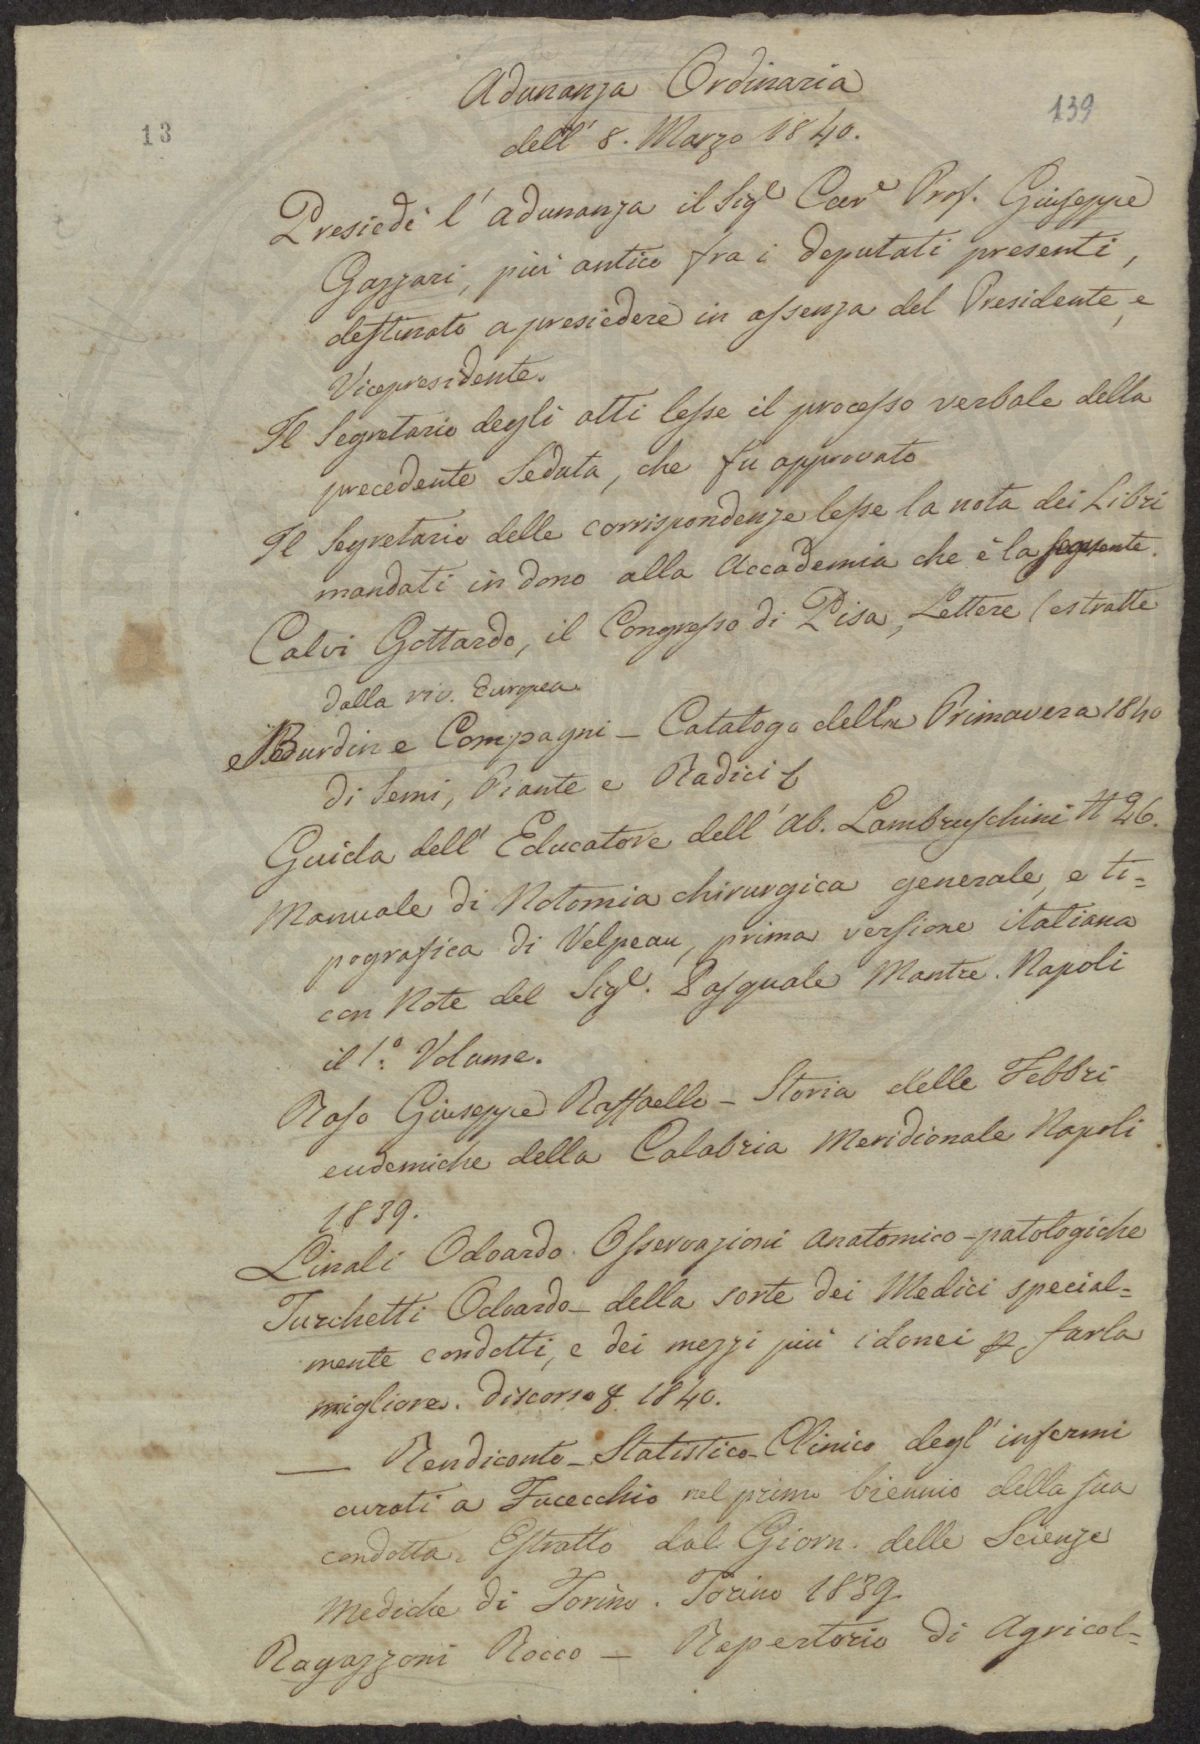 Adunanza Ordinaria
139
13
dell' 8. Marzo 1840.
Presiedè l'adunanza il Sigr Cavr Prof. Giuseppe
Gazzari, più antico fra i deputati presenti,
destinato a presiedere in assenza del Presidente, e
Vicepresidente.
Il Segretario degli atti lesse il processo verbale della
precedente Seduta, che fu approvato
Il Segretario delle corrispondenze lesse la nota dei Libri
mandati in dono alla Accademia che è la seguente.
Calvi Gottardo, il Congresso di Pisa, Lettere (estratte
dalla riv. Europea
Burdin e Compagni - Catalogo della Primavera 1840
di Semi, Piante e Radici
Guida dell'Educatore dell'Ab. Lambruschini N 26.
Manuale di Notomia chirurgica generale, e ti=
pografica di Velpeau, prima versione italiana
con Note del Sigr. Pasquale Mantre. Napoli
il 1.º Volume.
Raso Giuseppe Raffaello - Storia delle Febbri
endemiche della Calabria Meridionale Napoli
1839.
Linali Odoardo Osservazioni anatomico-patologiche
Turchetti Odoardo - della sorte dei Medici special=
mente condotti, e dei mezzi più idonei p farla
migliore. Discorso 1840.
— Rendiconto - Statistico - Clinico degl'infermi
curati a Fucecchio nel primo biennio della sua
condotta. Estratto dal Giorn. delle Scienze
Mediche di Torino. Torino 1839
Ragazzoni Rocco - Repertorio di Agricol=